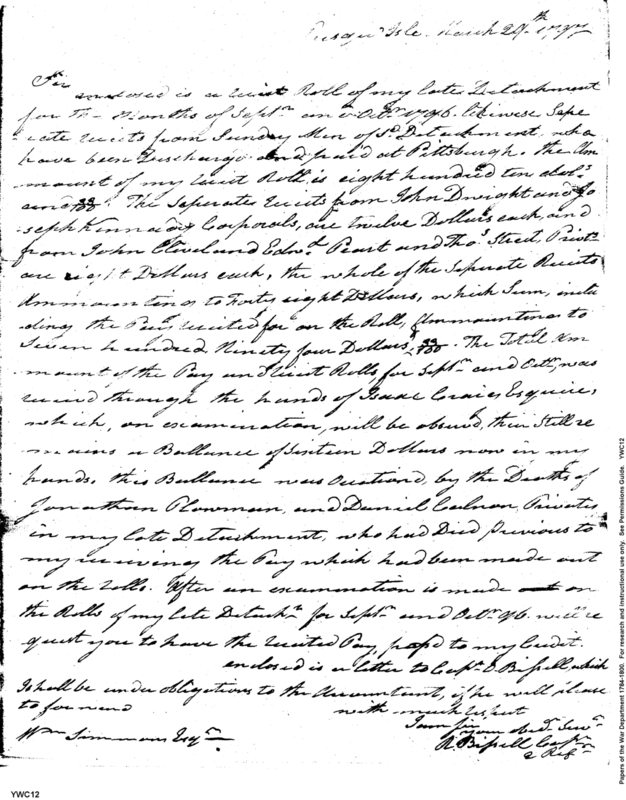 Presqu' Isle March 29th 1797
Sir
enclosed is a Receit Roll of my late Detachment
for the Months of Septr and Octr 1796. likewise Sepe
rate receits from Sunday Men of sd Detachment who
have been Discharged and paid at Pittsburgh. the Am
mount of my Receit Roll, is eight hundred ten dols
and 33/100. The Seperates receits from John Dwight and Jo
seph Kinnaday Corporals, are twelve Dollars each, and
from John Cleveland Edwd Peart and Thos Street, Privts
are eight Dollars each, the whole of the Seperate Receits
Ammounting to Forty eight Dollars, which Sum, inclu
ding the Pay receited for on the Roll, Ammounting to
Seven hundred Ninety four Dollars 33/100. The Total Am
mount of the Pay and Receit Rolls, for Septr and Octr, was
receivd through the hands of Isaac Craig Esquire,
which, on examination, will be obsevd, their Still re
mains a Ballance of Sixteen Dollars now in my
hands. this Ballance was Ocationd, by the Deaths of
Jonathan Plowman, and Daniel Privates
in my late Detachment, who had Died previous to
my receiving the Pay which had been made out
on the rolls. After an examination is made on
the Rolls of my late Detachmt for Septr and Octr 96. will re
quest you to have the receited Pay, pass'd to my Credit.
enclosed is a letter to Capt. D. Bissell, which
I shall be under obligations to the Accountant, if he will please
to forward
with much respect
I am Sir
your obedt Servt
R. Bissell Captn
2 Regt
Wm Simmons Esqr
YWC12
Papers of the War Department 1784-1800. For research and instructional use only. See Permissions Guide. YWC12